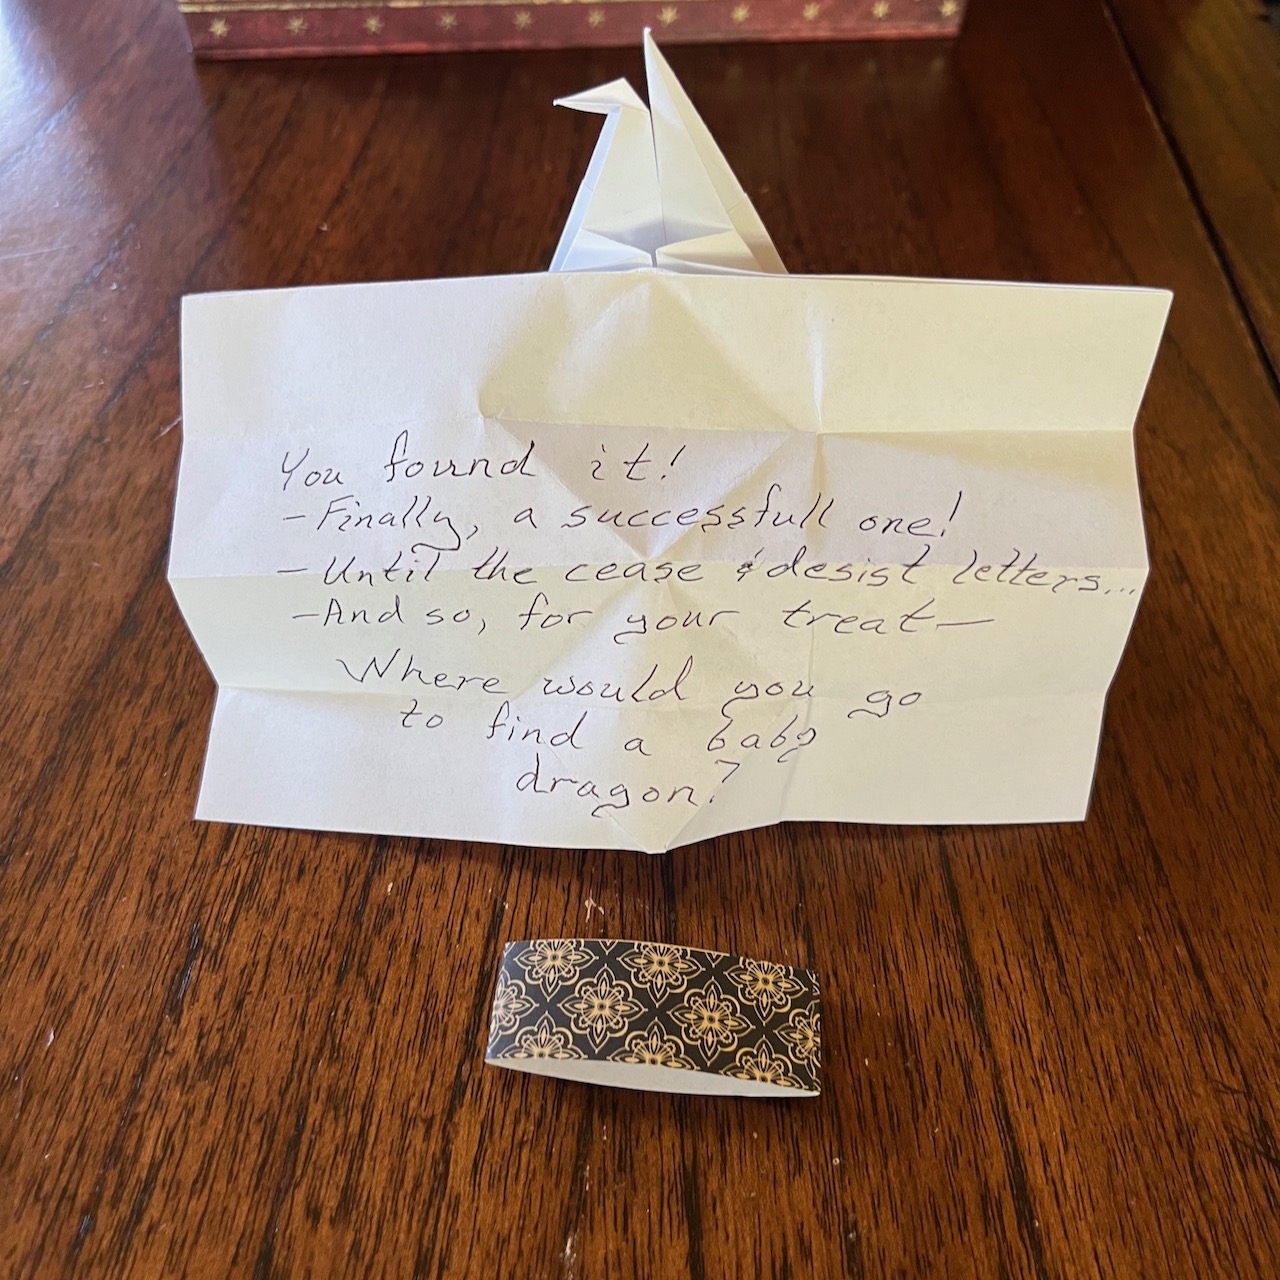 You found it!
-Finally, a successfull one!
-Until the cease & desist letters...
-And so, for your treat—
Where would you go
to find a baby
dragon?